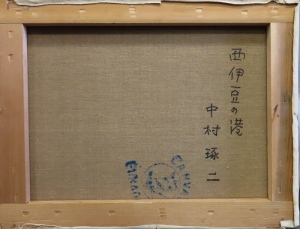 西伊豆の港
中村琢二